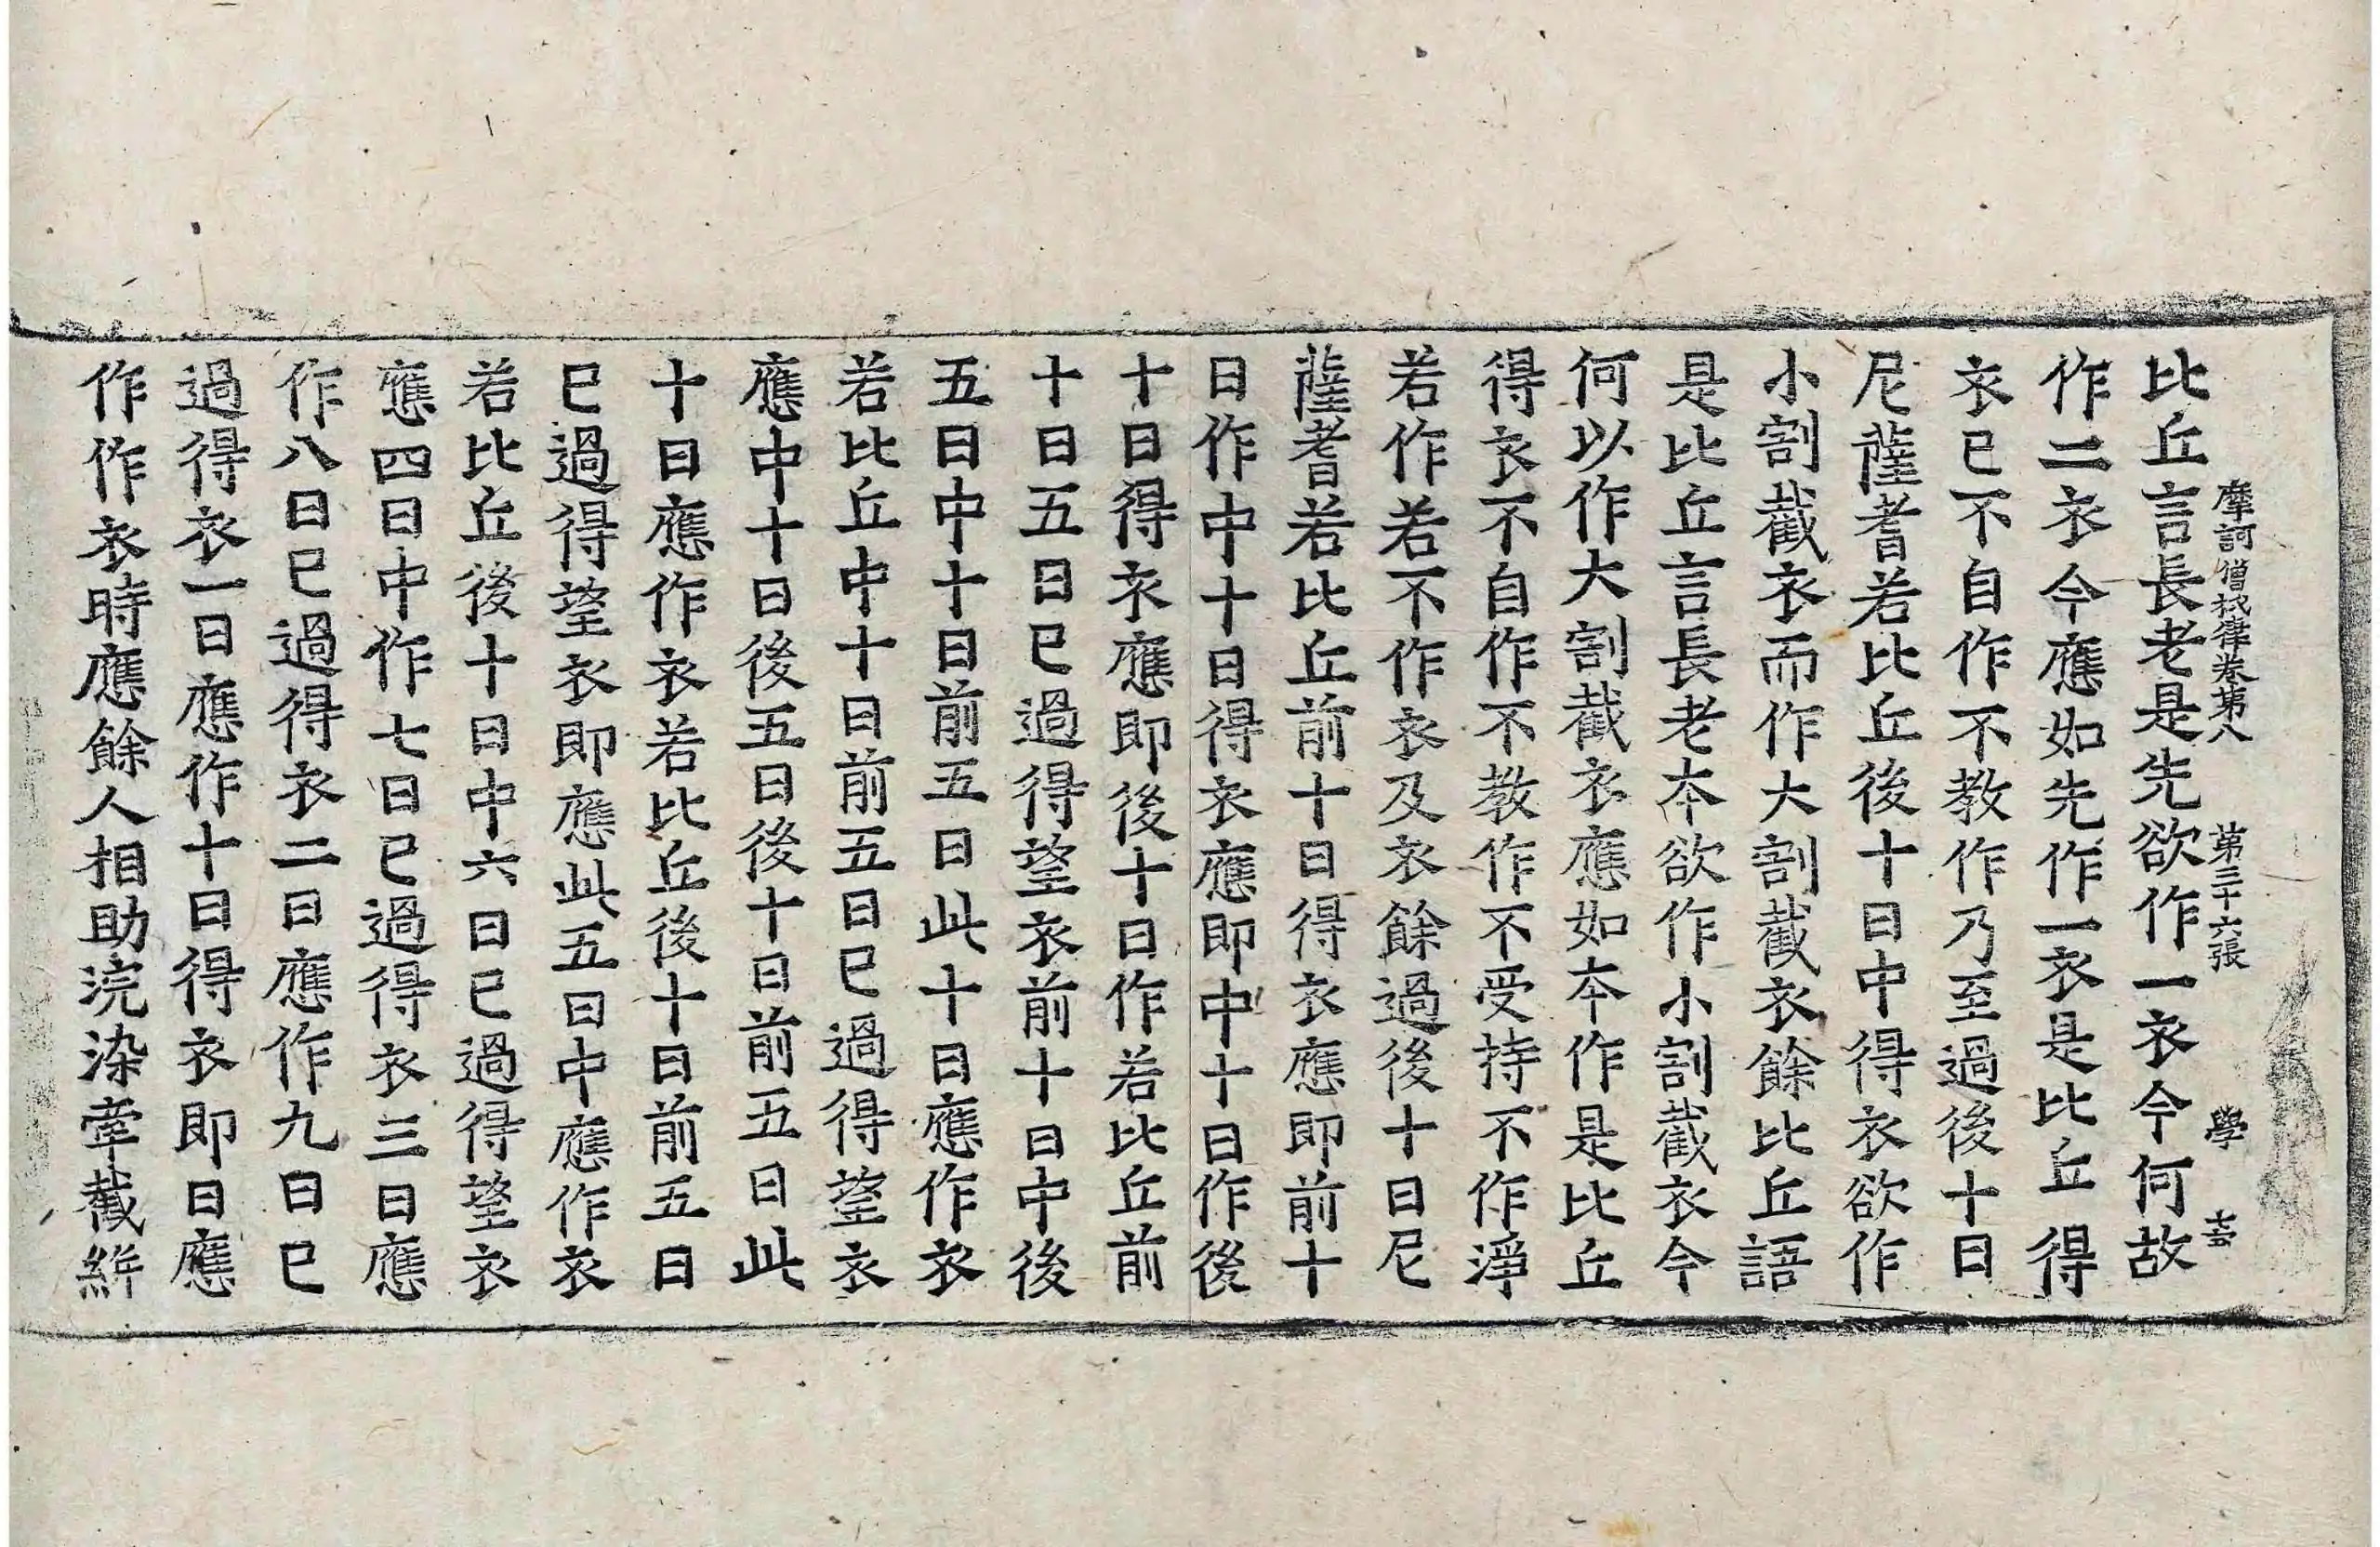 摩訶僧祇律卷第八 第三十六張 學
比丘言長老是先欲作一衣今何故
作二衣今應如先作一衣是比丘得
衣已不自作不教作乃至過後十日
尼薩耆若比丘後十日中得衣欲作
小割截衣而作大割截衣餘比丘語
是比丘言長老本欲作小割截衣今
何以作大割截衣應如本作是比丘
得衣不自作不教作不受持不作淨
若作若不作衣及衣餘過後十日尼
薩耆若比丘前十日得衣應即前十
日作中十日得衣應即中十日作後
十日得衣應即後十日作若比丘前
十日五日已過得望衣前十日中後
五日中十日前五日此十日應作衣
若比丘中十日前五日已過得望衣
應中十日後五日後十日前五日此
十日應作衣若比丘後十日前五日
已過得望衣即應此五日中應作衣
若比丘後十日中六日已過得望衣
應四日中作七日已過得衣三日應
作八日已過得衣二日應作九日已
過得衣一日應作十日得衣即日應
作作衣時應餘人相助浣染牽截絣